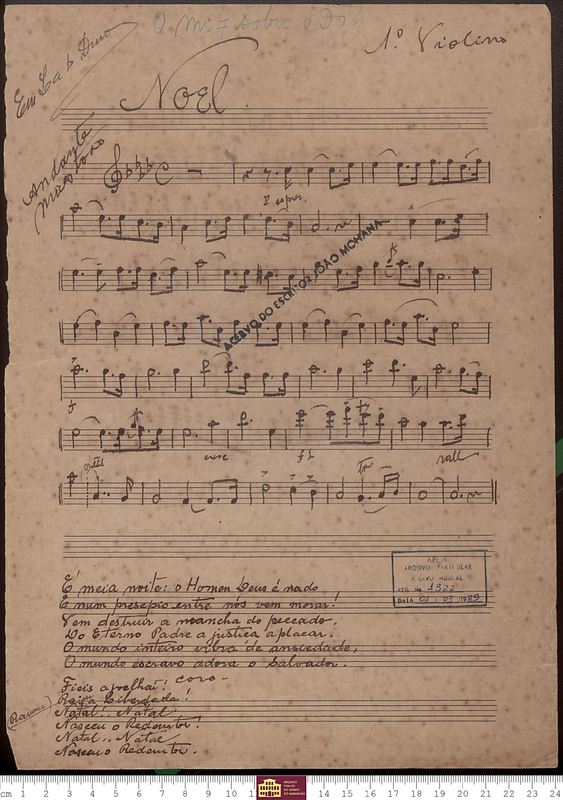 O mi sobre o Dó
1º Violino
Em La b Duro
Noel
Andante
maestoso
P espres.
ACERVO DO ESCRITOR JOÃO MOHANA
f
cresc
ff
rall
APEM
ARQUIVO PARTICULAR
ACERVO MUSICAL
REG. No 1322
DATA 02/03/1989
É meia noite: o Homem Deus é nado
E num presepio entre nós vem morar!
Vem destruir a mancha do peccado,
Do Eterno Padre a justiça aplacar.
O mundo inteiro vibra de anciedade,
O mundo escravo adora o Salvador.
Coro -
Fieis ajoelhai!
Raiou a Liberdade!
(Raiou)
Natal!.. Natal!
Nasceu o Redemtor!
Natal.. Natal
Nasceu o Redemtor.
cm 1 2 3 4 5 6 7 8 9 10 11 ARQUIVO PÚBLICO DO ESTADO DO MARANHÃO 14 15 16 17 18 19 20 21 22 23 24